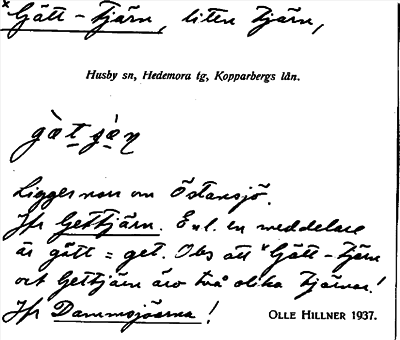 *Gätt-tjärn, liten tjärn,
Husby sn, Hedemora tg, Kopparbergs län.
Ligger nv om Östansjö.
Jfr Gettjärn. Enl. en meddelare
är gätt = get. Obs att *Gätt-tjärn
och Gettjärn äro två olika tjärnar!
Jfr Dammsjöarna! OLLE HILLNER 1937.